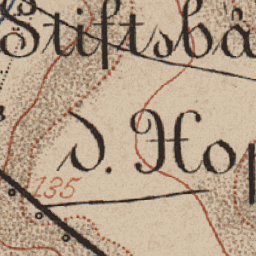 Stiftsbå
d. Hop
135